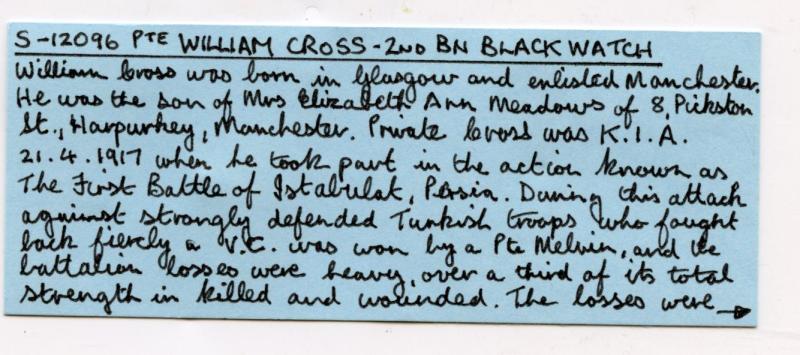 S-12096 PTE WILLIAM CROSS - 2ND BN BLACK WATCH
William Cross was born in Glasgow and enlisted Manchester.
He was the son of Mrs Elizabeth Ann Meadows of 8, Pickston
St., Harpurhey, Manchester. Private Cross was K.I.A.
21.4.1917 when he took part in the action known as
The First Battle of Istabulat, Persia. During this attack
against strongly defended Turkish troops who fought
back fiercly a V.C. was won by a Pte Melvin, and the
battalion losses were heavy, over a third of its total
strength in killed and wounded. The losses were →